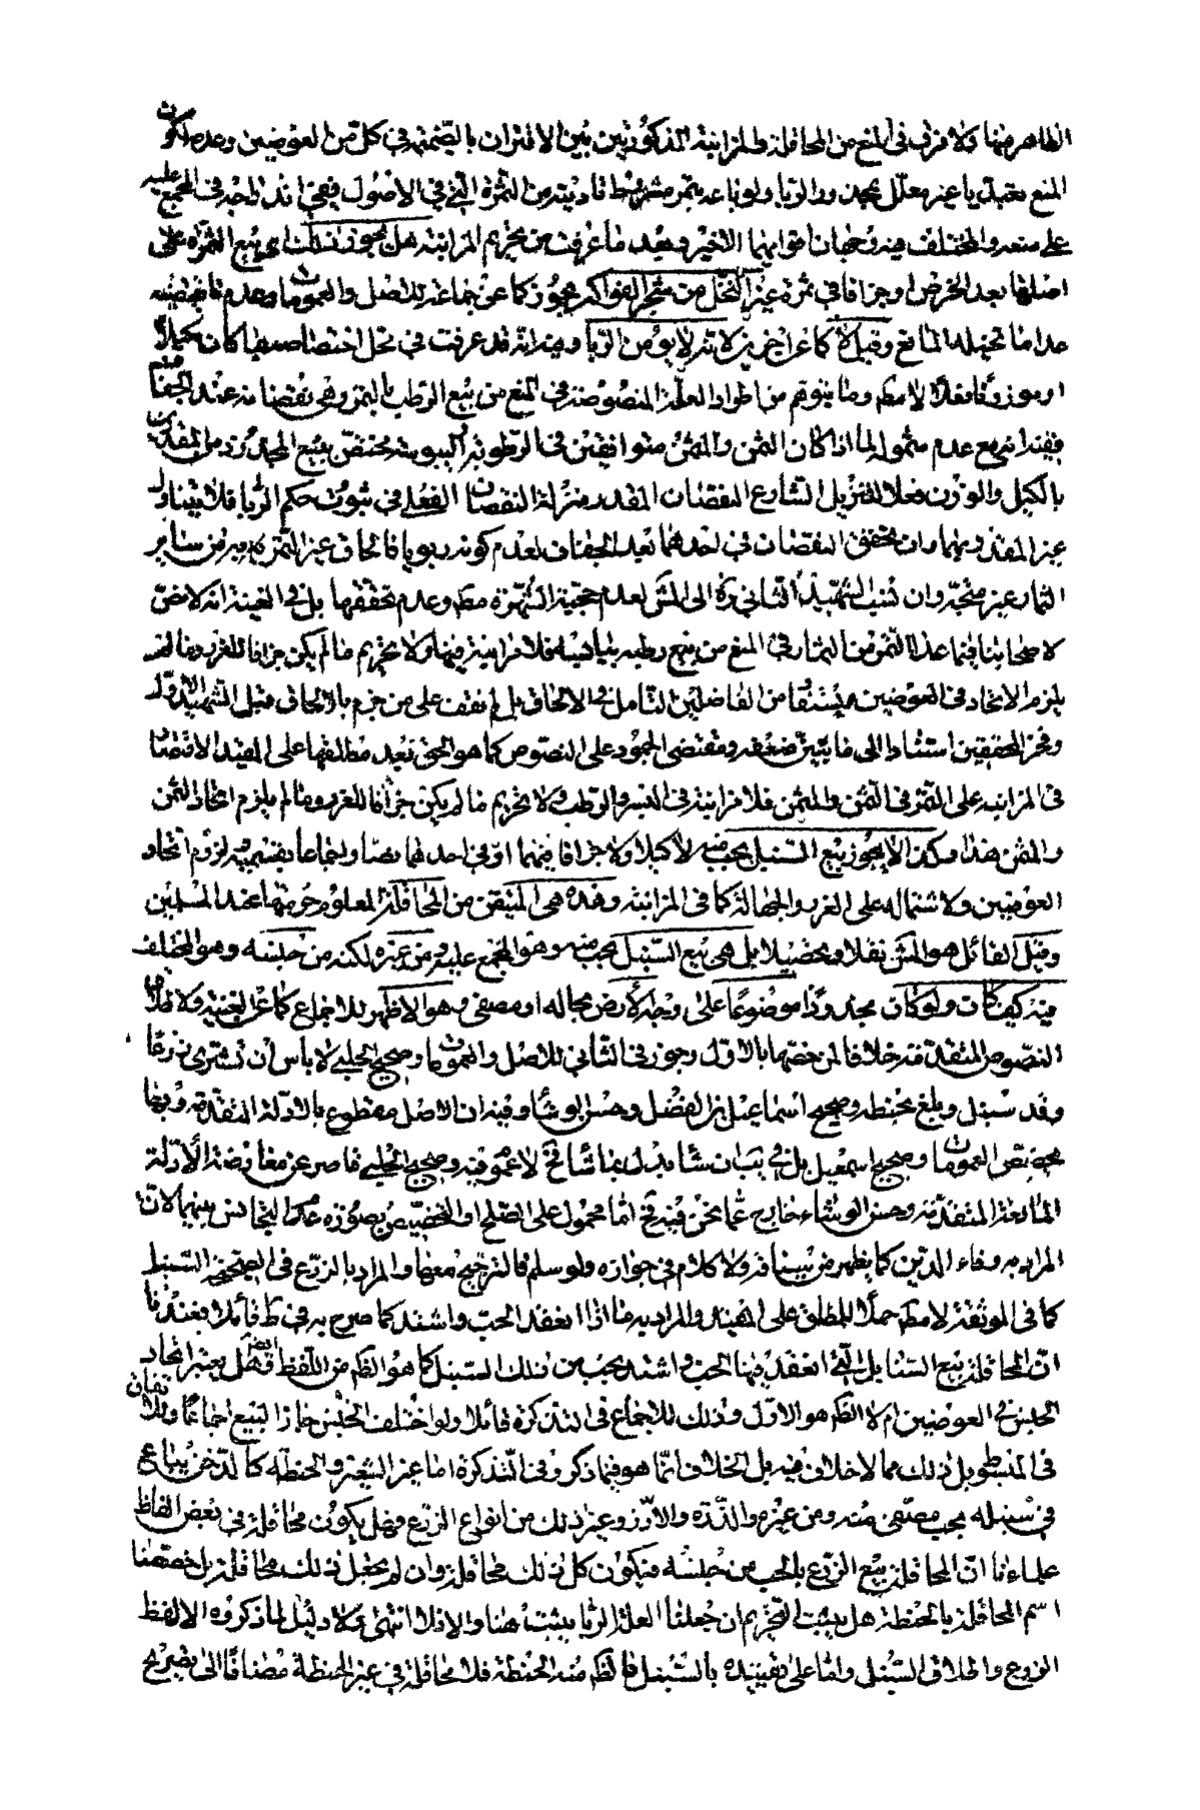 الظاهر منها ولا فرق في المنع من المحاقلة والمزابنة المذكورتين بين الاقتران بالضميمة في كل من العوضين وعدمه لكون
المنع تعبديا غير معلل بعدم ورود الربا ولو باعه بتمر مشروط تاديته من الثمرة التي في الاصول فيحتمل اندراجه في المجمع عليه
على منعه والمختلف فيه وجهان اقواهما الاخير وبعد ما عرفت من تحريم المزابنة هل يجوز ذلك اي بيع الثمرة على
اصلها بعد الخرص او جزافا في ثمرة غير النخل من شجر الفواكه يجوز كما عن جماعة للاصل والعمومات وعدم ما يقتضيه
عدا ما تخيله المانع وقيل لا كما عن اخرين لانه لا يؤمن الربا وفيه انه قد عرفت في محل اختصاصه بما كان مكيلا
او موزونا فعلا لا مطلقا وما يتوهم من اطراد العلة المنصوصة في المنع من بيع الرطب بالتمر وهي نقصانه عند الجفاف
ففيه انه مع عدم شموله لما اذا كان الثمن والمثمن متوافقين في الرطوبة واليبوسة مختص ببيع المجذوذ من المقدر
بالكيل والوزن فعلا لتنزيل الشارع النقصان المقدر منزلة النقصان الفعلي في ثبوت حكم الربا فلا يتناول
غير المقدر بهما وان تحقق النقصان في احدهما بعد الجفاف لعدم كونه ربويا فالحاق غير التمرة بها من سائر
الثمار غير متجه وان نسبه الشهيد الثاني ره الى المش لعدم حجية الشهرة مط وعدم تحققها بل في الغنية انه لا نص
لاصحابنا فيما عدا التمر من الثمار في المنع من بيع رطبه بيابسه فلا مزابنة فيها ولا تحريم ما لم يكن جزافا للغرر وما لم
يلزم الاتحاد في العوضين
وفخر المحققين استنادا الى ما تبين ضعفه ومقتضى الجمود على النصوص كما هو الحق بعد مطلقها على المقيد الاقتصار
في المزابنة على التمر في الثمن والمثمن فلا مزابنة في البسر والرطب ولا تحريم ما لم يكن جزافا للغرر وما لم يلزم اتحاد الثمن
والمثمن هذا وكذا لا يجوز بيع السنبل بحب منه لا كيلا ولا جزافا فيهما او في احدهما نصا واجماعا بقسميه ولزوم اتحاد
العوضين ولاشتماله على الغرر والجهالة كما في المزابنة وهذه هي المتيقن من المحاقلة المعلوم حرمتها عند المسلمين
وقيل القائل هو المش نقلا وتحصيلا بل هي بيع السنبل بحب منه وهو المجمع عليه ومن غيره لكنه من جنسه وهو المختلف
فيه كيف كان ولو كان مجذوذا موضوعا على وجه الارض بحاله او مصفى وهو الاظهر للاجماع كما عن الغنية ولاطلاق
النصوص المتقدمة خلافا لمن خصها بالاول وجوز في الثاني للاصل والعمومات وصحيح الحلبي لا باس ان تشتري زرعا
وقد سنبل وبلغ بحنطة وصحيح اسماعيل بن الفضل وحسن الوشا وفيه ان الاصل مقطوع بالادلة المتقدمة وبها
تخصيص العمومات وصحيح اسمعيل بل في
المانعة المتقدمة وحسن الوشاء خارج عما نحن فيه
المراد به وفاء الدين كما يظهر من سياقه ولا كلام في جوازه ولو سلم فالترجيح معها والمراد بالزرع في الصحيحة السنبل
كما في الموثقة لا مط حملا للمطلق على المقيد والمراد به ما اذا انعقد الحب واشتد كما صرح به في ط قائلا بعندنا
ان المحاقلة بيع السنابل التي انعقد فيها الحب واشتد بحب من ذلك السنبل كما هو الظم من اللفظ ايضا فهل يعتبر اتحاد
الجنس في العوضين ام لا الظم هو الاول وذلك للاجماع في التذكرة قائلا ولو اختلف الجنس جاز البيع اجماعا متقابضان
في المبسوط بل ذلك مما لا خلاف فيه بل الخلاف انما هو فيما ذكروا في التذكرة اما غير الشعير والحنطة كالدخن يباع
في سنبله بحب مصفى منه ومن غيره والذرة والارز وغير ذلك من انواع الزرع فهل يكون محاقلة في بعض الفاظ
علماءنا ان المحاقلة بيع الزرع بالحب من جنسه فيكون كل ذلك محاقلة وان لم يجعل ذلك محاقلة بل خصصنا
اسم المحاقلة بالحنطة هل يثبت التحريم ان جعلنا العلة الربا يثبت هنا والا فلا انتهى ولا دليل لما ذكروه الا لفظ
الزرع واطلاق السنبل واما على تقييده بالسنبل فالظم منه الحنطة فلا محاقلة في غير الحنطة مضافا الى تصريح